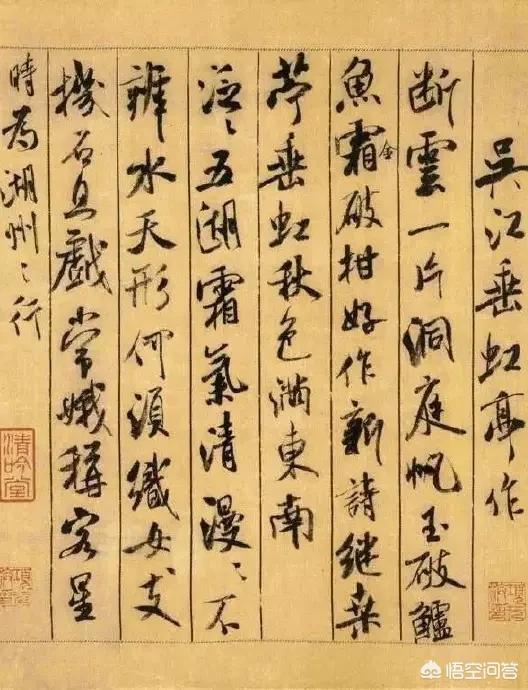 吳江垂虹亭作
断雲一片洞庭帆玉破鱸
魚霜金破柑好作新詩継桑
苧垂虹秋色滿東南
泛〻五湖霜氣清漫〻不
辨水天形何須織女支
機石且戲常娥稱客星
時為湖州之行
清吟堂
悟空问答